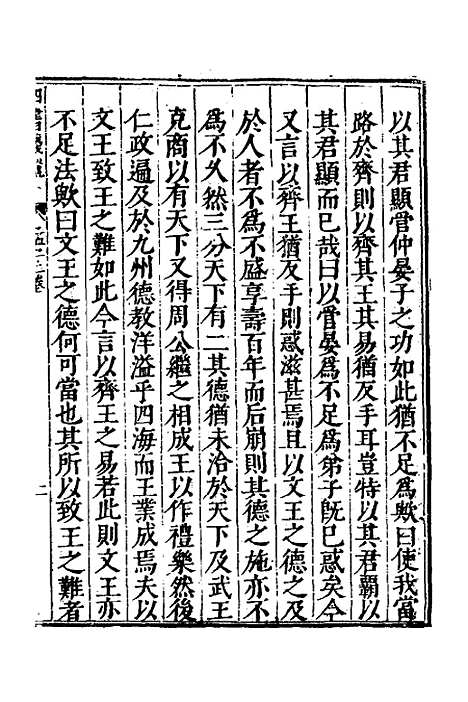 以其君顯管仲晏子之功如此猶不足爲歟曰使我當
路於齊則以齊其王其易猶反手耳豈特以其君霸以
其君顯而已哉曰以管晏爲不足爲弟子旣已惑矣今
又言以齊王猶反手則惑滋甚焉且以文王之德之及
於人者不爲不盛享壽百年而后崩則其德之施亦不
爲不久然三分天下有二其德猶未洽於天下及武王
克商以有天下又得周公繼之相成王以作禮樂然後
仁政遍及於九州德教洋溢乎四海而王業成焉夫以
文王致王之難如此今言以齊王之易若此則文王亦
不足法歟曰文王之德何可當也其所以致王之難者